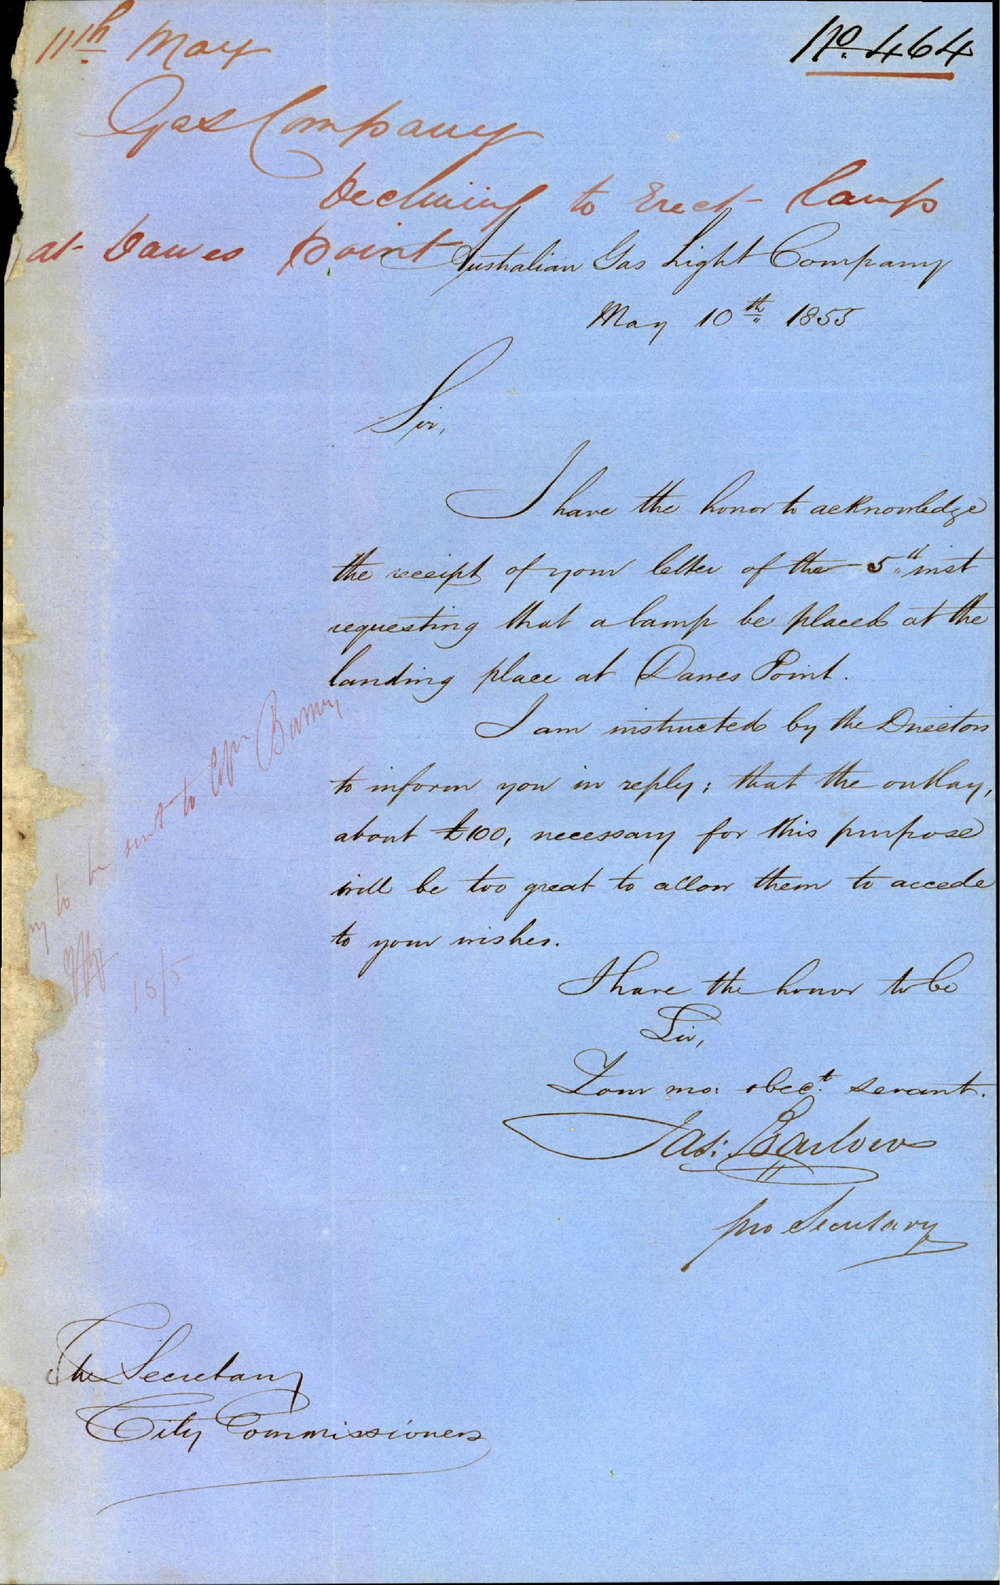 11th May
No. 464
Gas Company
Declining to Erect Lamp
at Dawes Point
Australian Gas Light Company
May 10th 1855
Sir,
I have the honor to acknowledge
the receipt of your letter of the 5th inst
requesting that a lamp be placed at the
landing place at Dawes Point.
I am instructed by the Directors
to inform you in reply; that the outlay,
about £100, necessary for this purpose
will be too great to allow them to accede
to your wishes.
I have the honor to be
Sir,
Your mo: obedt. servant.
Jas: Barlow
pro Secretary
to be sent to Barney
15/5
The Secretary
City Commissioners